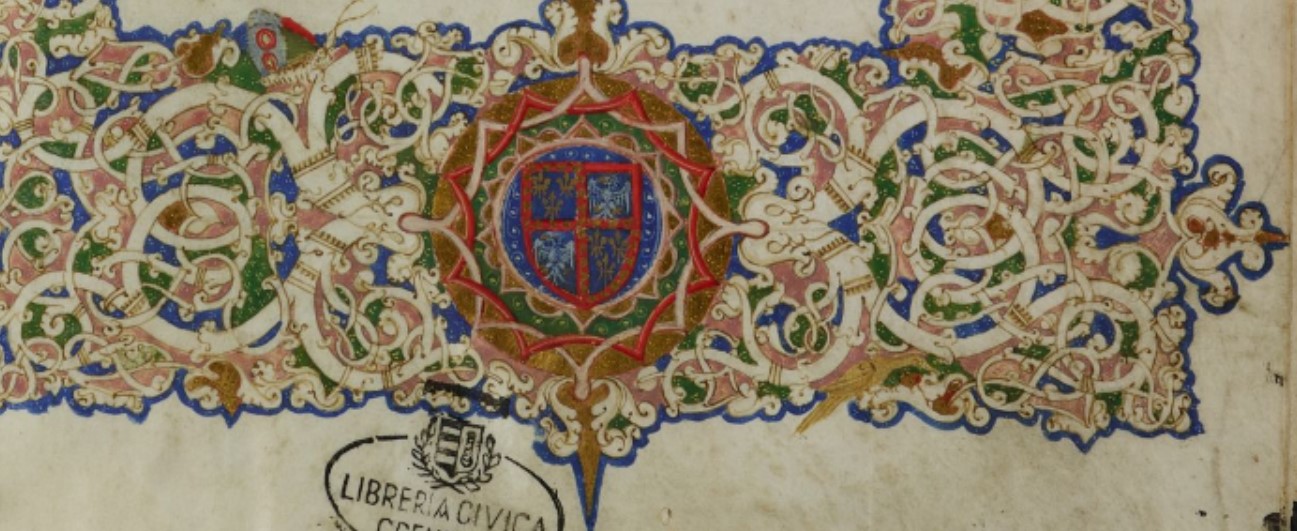 LIBRERIA CIVICA